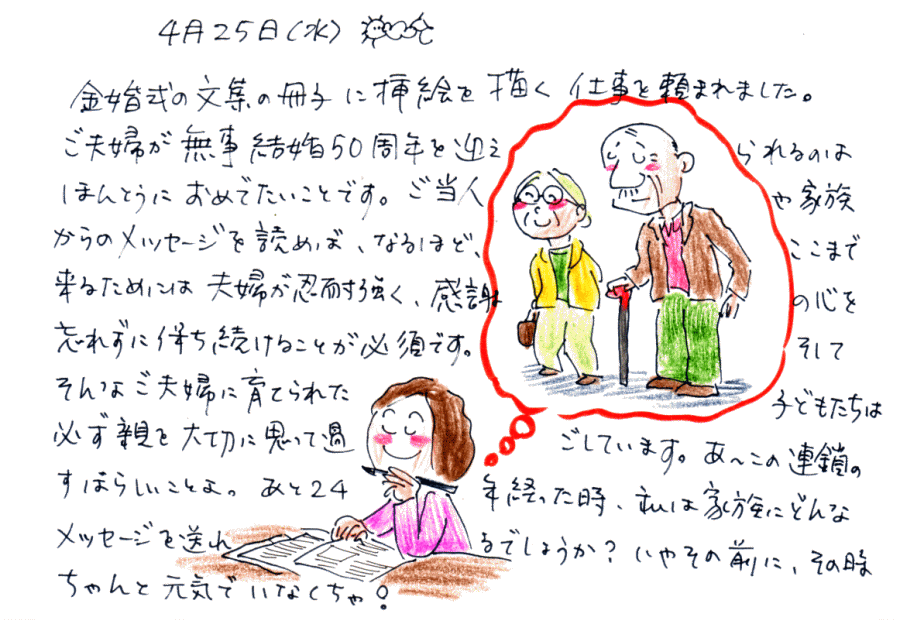 4月25日(水)
金婚式の文集の冊子に挿絵を描く仕事を頼まれました。
ご夫婦が無事結婚50周年を迎えられるのは
ほんとうにおめでたいことです。ご当人や家族
からのメッセージを読めば、なるほど、ここまで
来るためには夫婦が忍耐強く、感謝の心を
忘れずに保ち続けることが必須です。そして
そんなご夫婦に育てられた子どもたちは
必ず親を大切に思って過ごしています。あ〜この連鎖の
すばらしいことよ。あと24年経った時、私は家族にどんな
メッセージを送れるでしょうか?いやその前に、その時
ちゃんと元気でいなくちゃ!